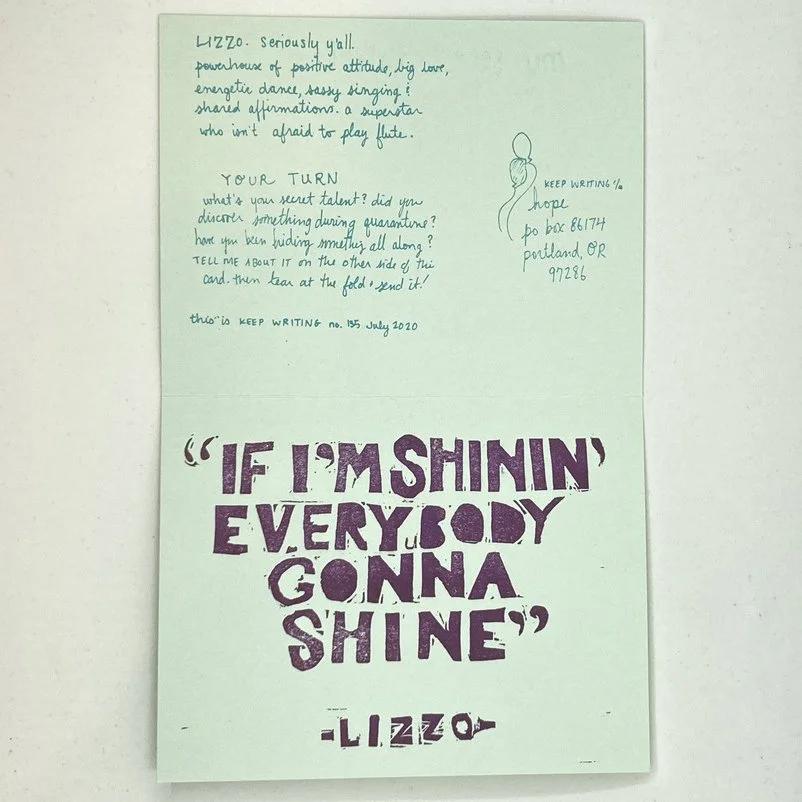 LIZZO. seriously y'all.
powerhouse of positive attitude, big love,
energetic dance, sassy singing &
shared affirmations. a superstar
who isn't afraid to play flute.
YOUR TURN
what's your secret talent? did you
discover something during quarantine?
have you been hiding something all along?
TELL ME ABOUT IT on the other side of this
card. then tear at the fold + send it!
this is KEEP WRITING no. 135 July 2020
KEEP WRITING %
hope
po box 86174
portland, OR
97286
“IF I'M SHININ'
EVERYBODY
GONNA
SHINE”
-LIZZO-